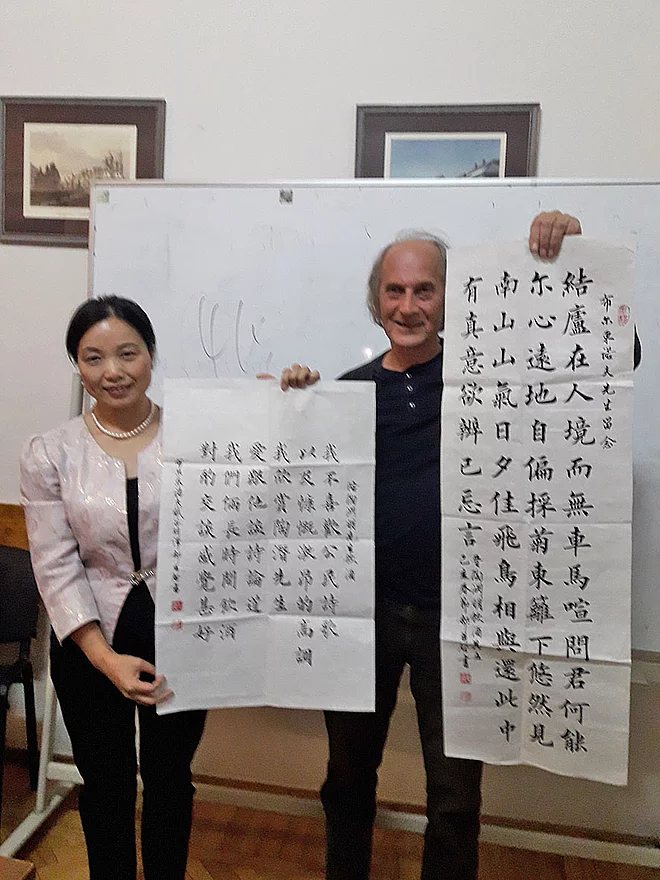 布尔東諾夫先生留念
結廬在人境而無車馬喧問君何能
尔心遠地自偏採菊東籬下悠然見
南山山氣日夕佳飛鳥相與還此中
有真意欲辨已忘言
晉陶渊明飲酒其五
己亥春節郭 書
我不喜歡公民詩歌
以及慷慨激昂的高調
我欣賞陶潛先生
愛跟他談詩論道
我們倆長時間飲酒
對酌交談感覺甚好